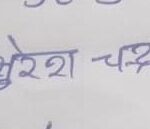 सुरेश चन्द्र